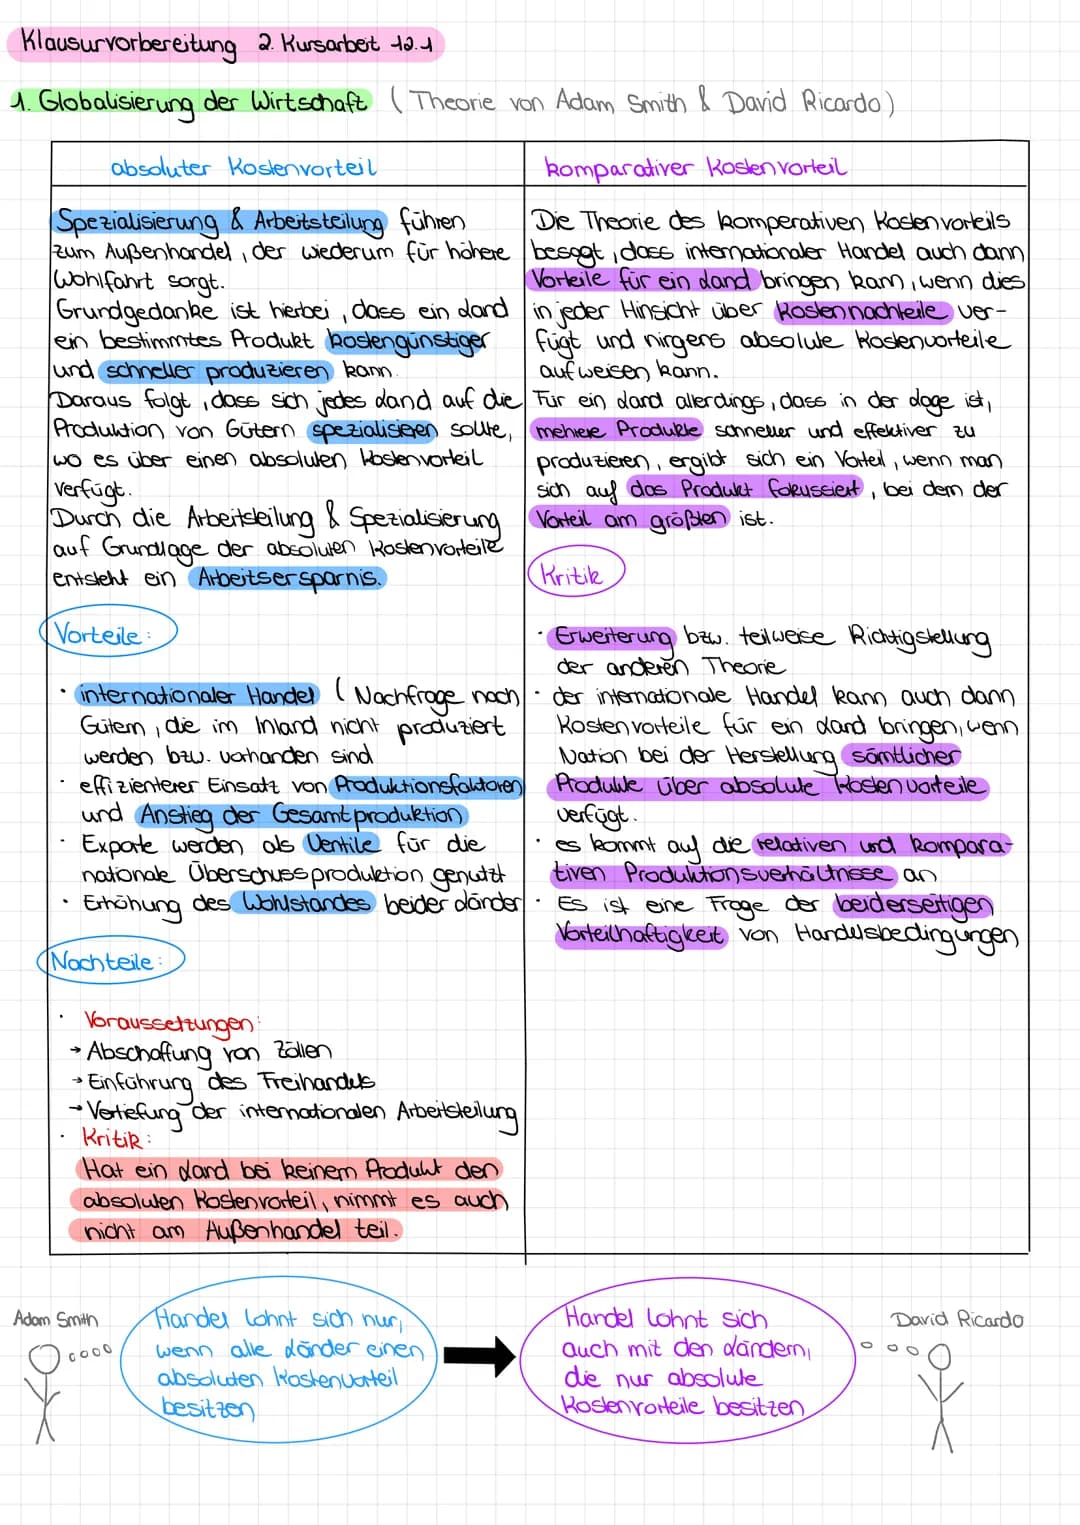 Klausurvorbereitung 2. Kursarbeit 12.1
1. Globalisierung der Wirtschaft (Theorie von Adam Smith & David Ricardo)
absoluter Kostenvorteil
Spezialisierung & Arbeitsteilung führen
zum Außenhandel, der wiederum für höhere
Wohlfahrt sorgt.
Grundgedanke ist hierbei, dass ein Land
ein bestimmtes Produkt kostengünstiger
und schneller produzieren kann.
Daraus folgt, dass sich jedes Land auf die
Produktion von Gütern spezialisieren sollte,
wo es über einen absoluten Kostenvorteil
verfügt.
Durch die Arbeitsteilung & Spezialisierung
auf Grundlage der absoluten Kostenvorteile
entsteht ein Arbeitsersparnis.
Vorteile:
· internationaler Handel (Nachfrage nach
Gütern, die im Inland nicht produziert
werden bzw. vorhanden sind
· effizienterer Einsatz von Produktionsfaktoren
und Anstieg der Gesamtproduktion
· Exporte werden als Ventile für die
nationale Überschussproduktion genutzt
· Erhöhung des Wohlstandes beider Länder
Nachteile:
· Voraussetzungen:
→ Abschaffung von Zöllen
→ Einführung des Freihandels
→ Vertiefung der internationalen Arbeitsteilung
· Kritik:
Hat ein Land bei keinem Produkt den
absoluten Kostenvorteil, nimmt es auch
nicht am Außenhandel teil.
komparativer Kostenvorteil
Die Theorie des komperativen Kostenvorteils
besagt, dass internationaler Handel auch dann
Vorteile für ein Land bringen kann, wenn dies
in jeder Hinsicht über Kostennachteile ver-
fügt und nirgens absolute Kostenvorteile
aufweisen kann.
Für ein Land allerdings, dass in der Lage ist,
mehere Produkte schneller und effektiver zu
produzieren, ergibt sich ein Vorteil, wenn man
sich auf das Produkt fokussiert, bei dem der
Vorteil am größten ist.
Kritik
· Erweiterung bzw. teilweise Richtigstellung
der anderen Theorie
· der internationale Handel kann auch dann
Kostenvorteile für ein Land bringen, wenn
Nation bei der Herstellung sämtlicher
Produkte über absolute Kostenvorteile
verfügt.
· es kommt auf die relativen und kompara-
tiven Produktionsverhältnisse an
· Es ist eine Frage der beiderseitigen
Vorteilhaftigkeit von Handelsbedingungen
Adam Smith
Handel lohnt sich nur,
wenn alle Länder einen
absoluten Kostenvorteil
besitzen
Handel lohnt sich
auch mit den Ländern,
die nur absolute
Kostenvorteile besitzen
David Ricardo